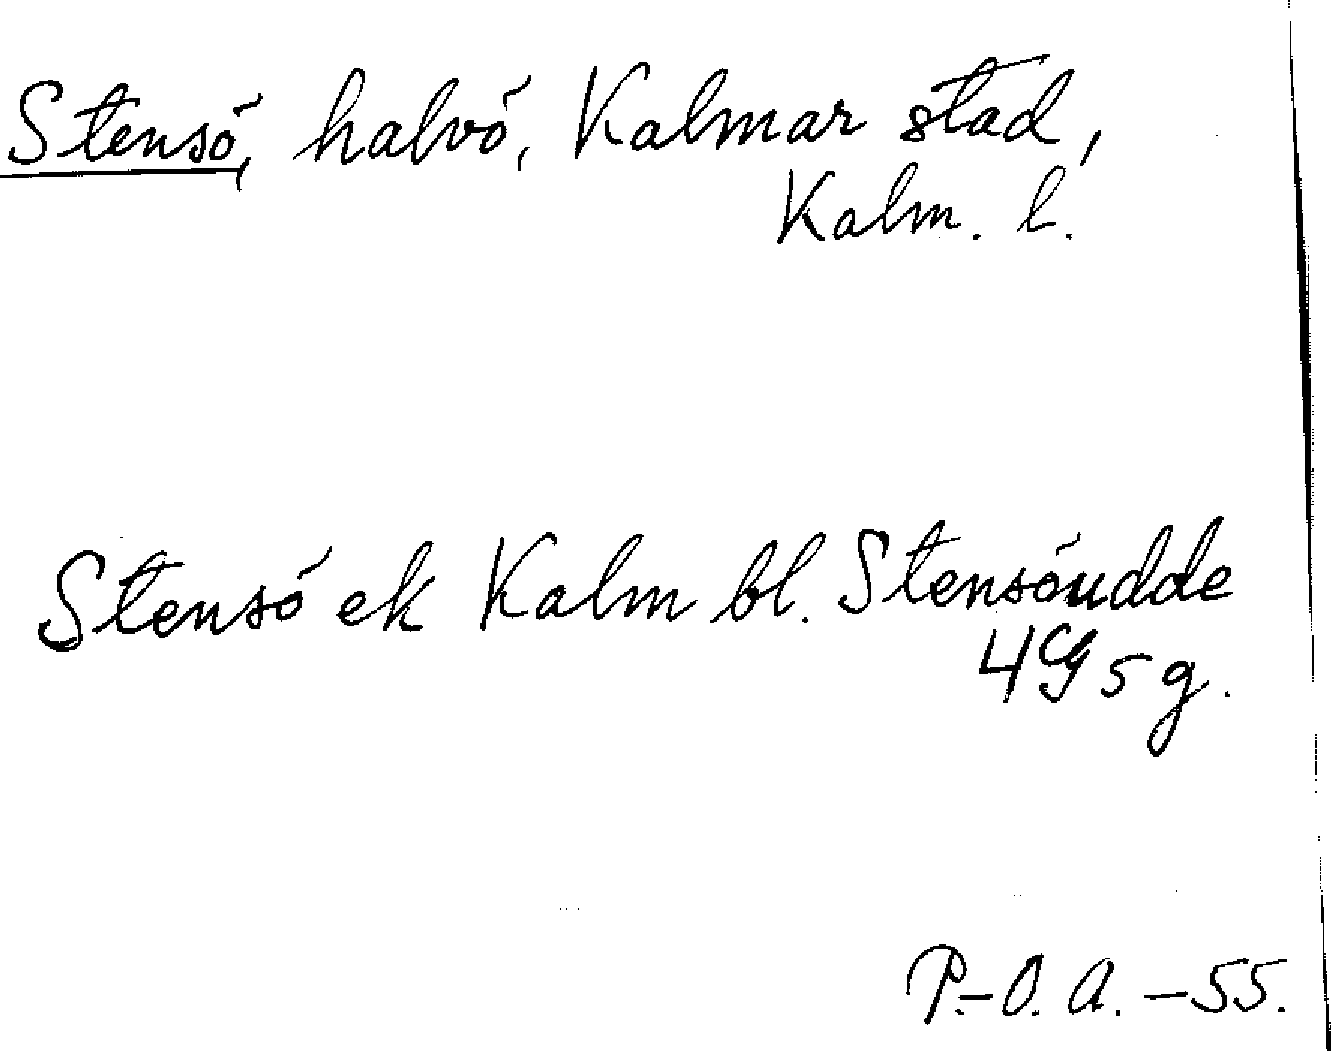 Stensö, halvö, Kalmar stad,
Kalm. l.
Stensö ek Kalm bl. Stensöudde
4G 5 g.
P.-O. A. -55.